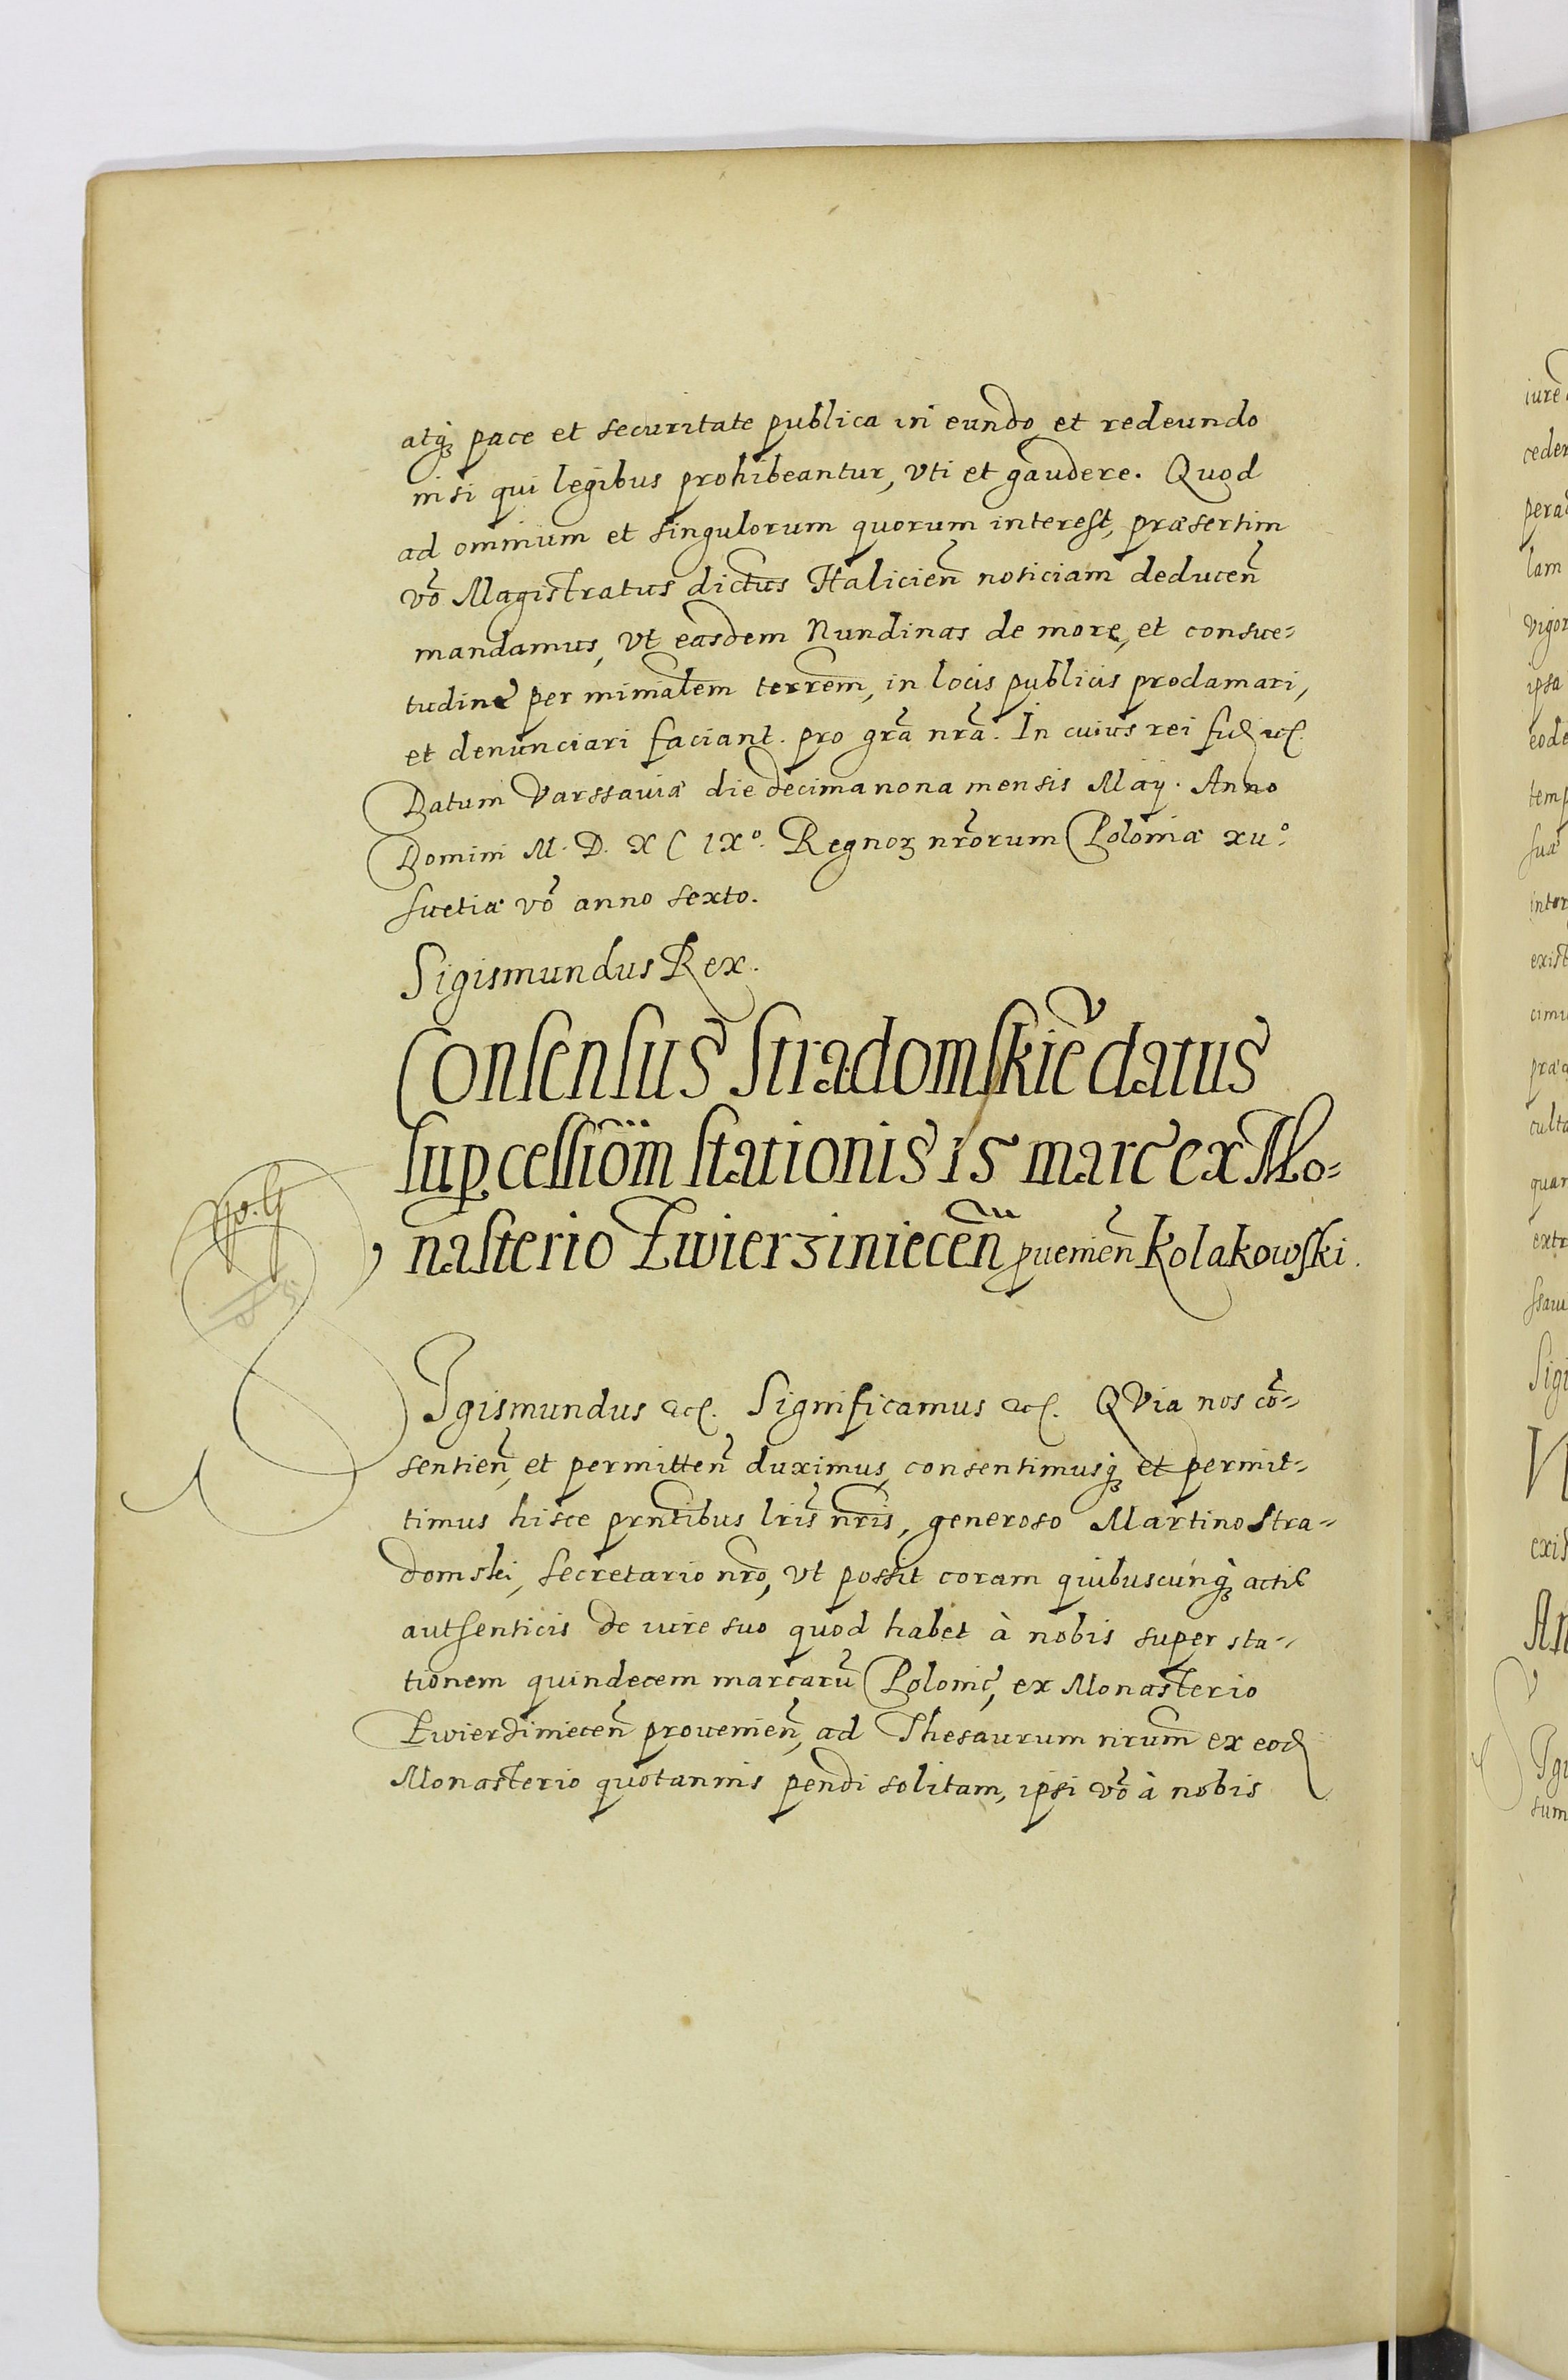 atq₃ pace et securitate publica in eundo et redeundo
nisi qui legibus prohibeantur, vti et gaudere. Quod
ad omnium et singulorum quorum interest, præsertim
vō Magistratus dictus Haliciēn noticiam deducēn
mandamus, vt easdem Nundinas de more, et consue-
tudine per minīalem terrēm, in locis publicis proclamari,
et denunciari faciant. pro grā nrā. In cuius rei fid ec.
Datum Varssauiæ die decima nona mensis Maij. Anno
Domini M. D. X C IX°. Regnoꝝ nrōrum Poloniæ xv°.
Suetiæ vō anno sexto.
Sigismundus Rex.
Consensus Stradomskiē datus
sup cessiōm stationis 15 marc ex Mo-
nasterio Zwierziniecēn prueniēn Kolakowski.
Sigismundus ec. Significamus ec. QVia nos cō-
sentiēn, et permittēn duximus, consentimusq₃ et permit-
timus hisce prntībus lrīs nrīs, generoso Martino Stra-
domski, Secretario nrō, vt possit coram quibuscunq₃ actis
autsenticis de iure suo quod habet à nobis super sta-
tionem quindecem marcarū Polonic̄, ex Monasterio
Zwierziniecēn proueniēn, ad Thesaurum nrūm ex eod
Monasterio quotannis pendi solitam, ipsi vō à nobis
iure
ceder
lam
vigor
ipsa
eode
temp
sua
inter
exist
cimu
præ
culta
quar
extr
ssau
Sigi
exis
An
Igi
sum